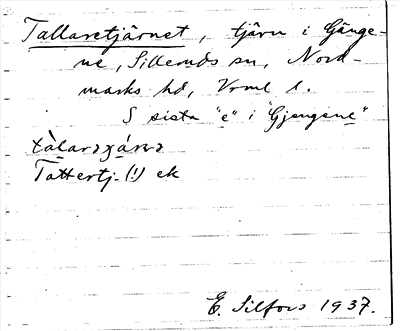 Tallaretjärnet, tjärn i Gänge-
ne, Silleruds sn, Nord-
marks hd, Vrml l.
S sista "e" i "Gjengene"
Tattertj. (!) ek
E. Silfors 1937.